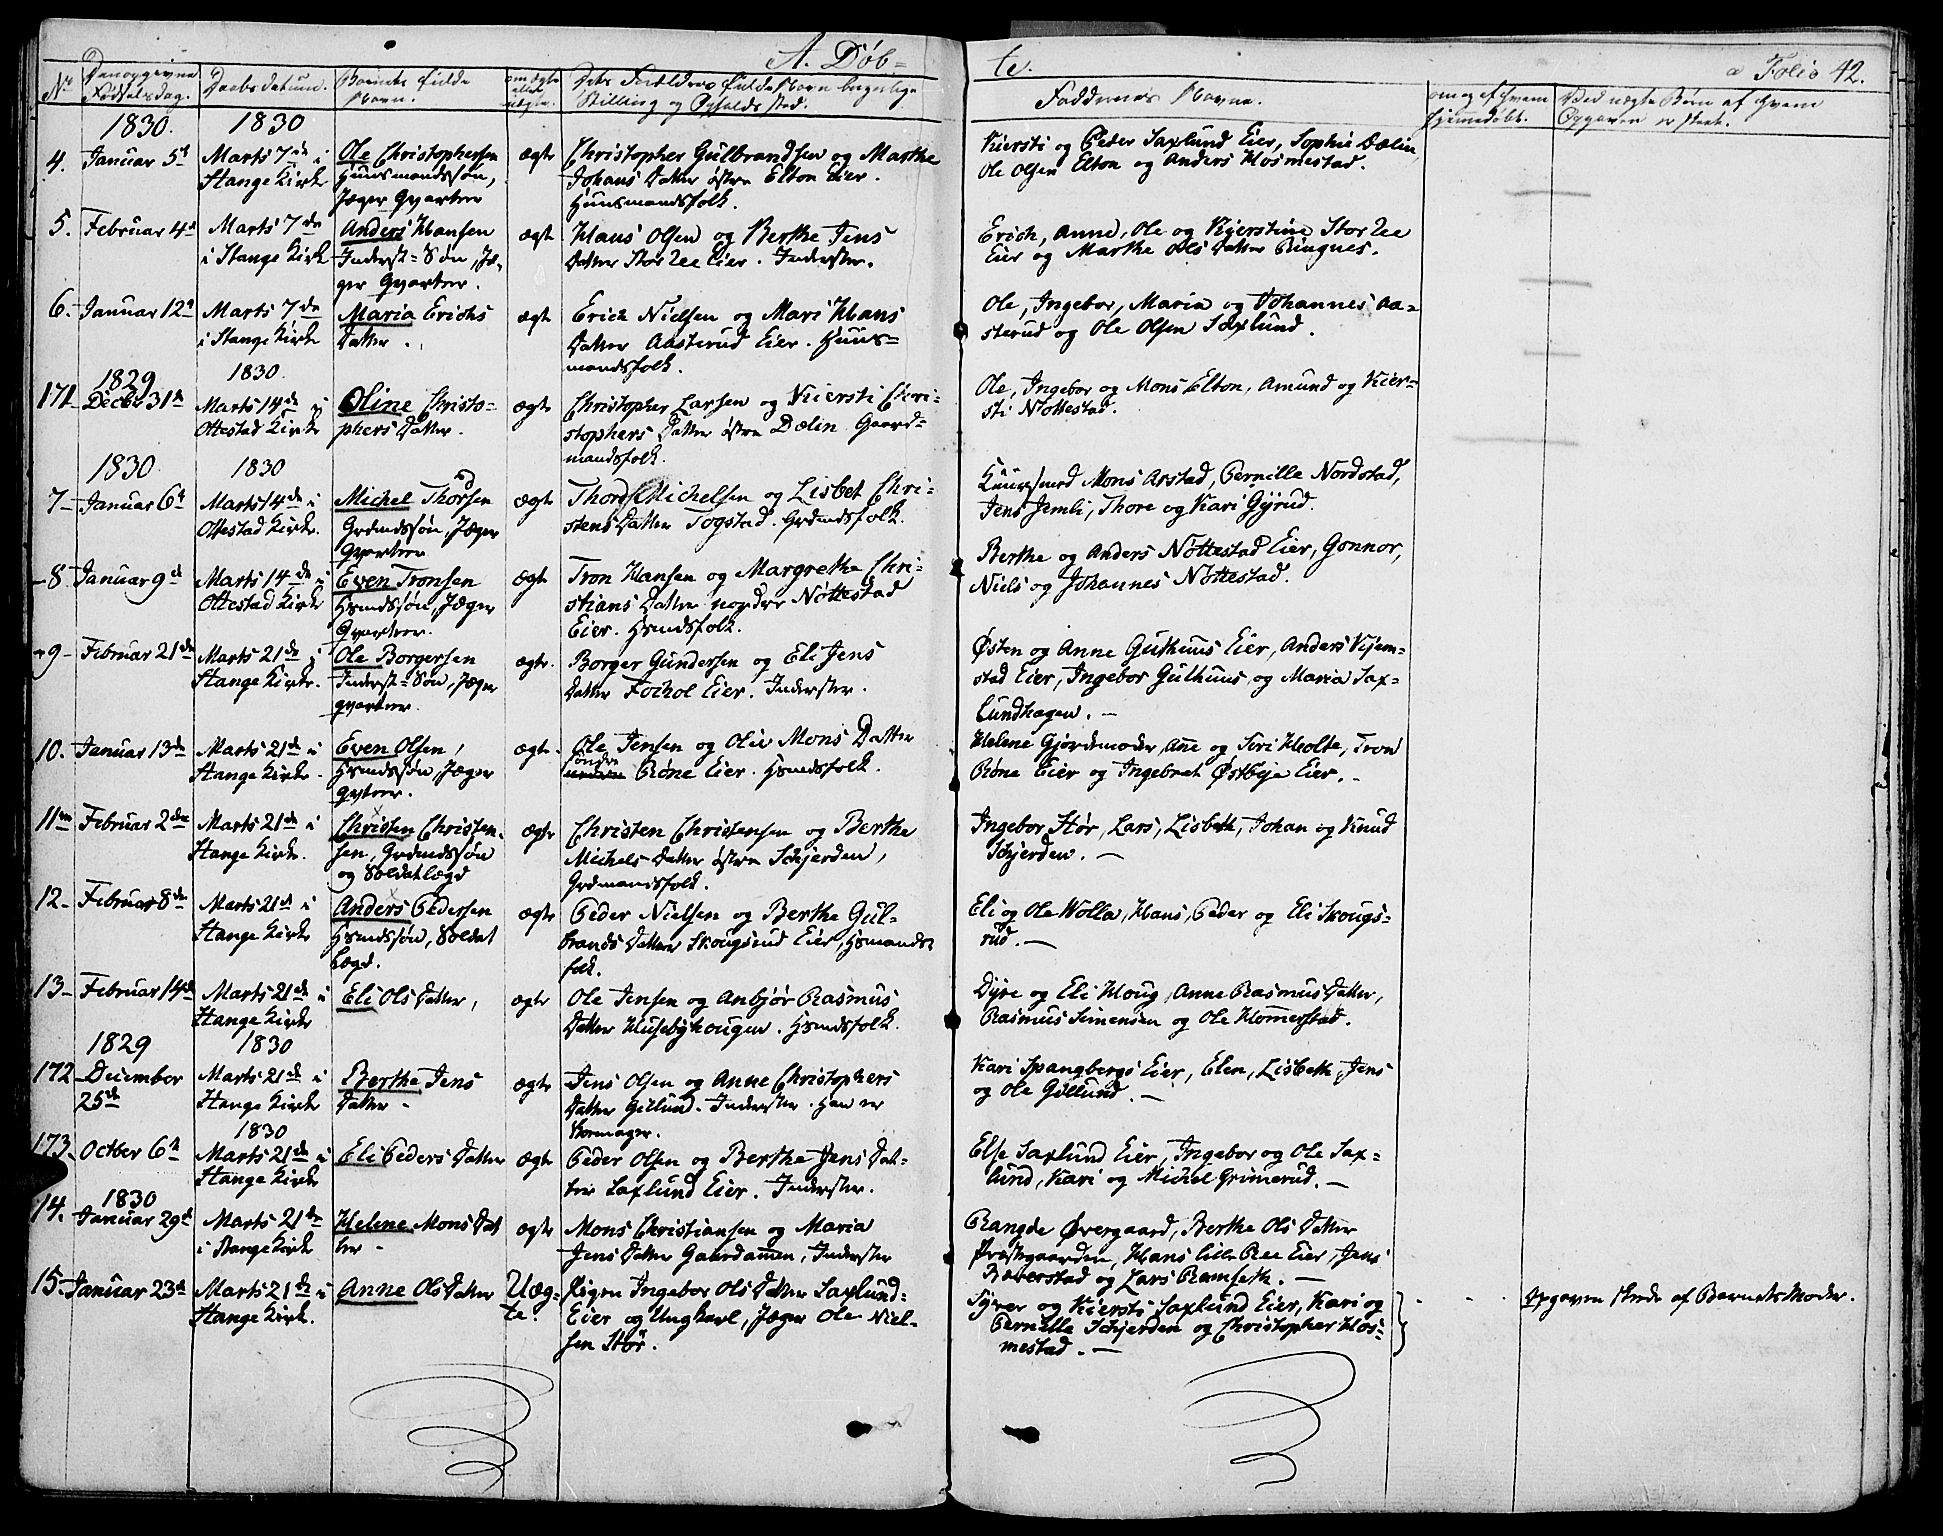 A. Døb=
te.
a Folio 42.
No
Den opgivne Fødselsdag.
Daabs datum.
Barnets fulde Navn.
om ægte eller uægte.
Dets Forældres fulde Navn borgerlige Stilling og Opholdssted.
Faddernes Navne.
om og af hvem hjemmedøbt.
Ved uægte Børn af hvem Opgaven er skeet.
1830. 1830
4. Januar 5te Marts 7de i Ole Christophersen ægte Christopher Gulbrandsen og Marthe Kiersti og Peder Saxlund Eier, Sophie Dælin
Stange Kirke Huusmandssøn, Johans Datter østre Elton Eier. Ole Olsen Elton og Anders Hosmestad.
Jæger Qvarteer Huusmandsfolk.
5. Februar 4de Marts 7de Anders Hansen ægte Hans Olsen og Berthe Jens Erich, Anne, Ole og Kjerstine Stor Ree
i Stange Kirke Inderst=Søn, Jæ- Datter Stor Ree Eier. Inderster. Eier og Marthe Ols Datter Ringnes.
ger Qvarteer.
6. Januar 12te Marts 7de Maria Erichs ægte Erich Nielsen og Mari Hans Ole, Ingebor, Maria og Johannes Aa=
i Stange Kirke Datter. Datter Aasterud Eier. Huus= sterud og Ole Olsen Saxlund.
mandsfolk.
1829 1830.
171 Decbr 31te Marts 14de i Oline Christo- ægte Christopher Larsen og Kiersti Chri- Ole, Ingebor og Mons Elton, Amund og Kier-
Ottestad Kirke phers Datter. stophers Datter østre Dælin Gaard= sti Nøttestad.
mandsfolk.
1830 1830
7 Januar 6te Marts 14de i Michel Thorsen ægte Thord Michelsen og Lisbet Chri- Mons Arstad, Pernille Nordstad,
Ottestad Kirke. Grdmdssøn, Jæger stens Datter Togstad. Grdmdsfolk. Jens Jemli, Thore og Kari Gyrud.
Qvarteer
8. Januar 9de Marts 14de i Even Tronsen ægte Tron Hansen og Margrethe Chri- Berthe og Anders Nøttestad Eier, Gonnor,
Ottestad Kirke Hsmdssøn, Jæger stians Datter nordre Nøttestad Niels og Johannes Nøttestad.
Qvarteer. Eier. Hsmdsfolk.
9 Februar 21de Marts 21de i Ole Borgersen ægte. Borger Gundersen og Eli Jens Østen og Anne Guthuus Eier, Anders Kjem-
Stange Kirke. Inderst=Søn, Jæger Datter Fokhol Eier. Inderster. stad Eier, Ingebor Gulhuus og Maria Sax=
qvarteer. lundhagen. —
10. Januar 13de Marts 21de i Even Olsen, ægte. Ole Jensen og Olie Mons Datter Helene Gjordemoder, Anne og Siri Holte, Tron
Stange Kirke. Hsmdssøn, Jæger søndre Røne Eier. Hsmdsfolk. Røne Eier og Ingebret Østbye Eier. -
Qvteer.
11 Februar 2den Marts 21de i Christen Christen- ægte Christen Christensen og Berthe Ingebor Stør, Lars, Lisbeth, Johan og Knud
Stange Kirke. sen, Grdmdssøn Michels Datter østre Schjerden, Schjerden. —
og Soldatlægd Grdmandsfolk.
12 Februar 8de Marts 21de i Anders Pedersen ægte Peder Nielsen og Berthe Gul- Eli og Ole Wolla, Hans, Peder og Eli Skougs-
Stange Kirke Hsmdssøn, Soldat brands Datter Skougsrud Eier, Hsmands= rud. —
Lægd. folk.
13 Februar 14de Marts 21de i Eli Ols Datter, ægte Ole Jensen og Anbjør Rasmus Dyre og Eli Houg, Anne Rasmus Datter,
Stange Kirke Datter Husebyhougen. Hsmdsfolk. Rasmus Simensen og Ole Hommerstad.
1829 1830
172 December Marts 21de i Berthe Jens ægte Jens Olsen og Anne Christophers Kari Spangbergs Eier, Elen, Lisbeth, Jens
25de Stange Kirke Datter - Datter Gillund. Inderster. Han er og Ole Gillund. —
Skomager.
1830
173 October 6te Marts 21de i Eli Peders Datter ægte Peder Olsen og Berthe Jens Dat- Else Saxlund Eier, Ingebor og Ole Sax=
Stange Kirke ter Saxlund Eier. Inderster. lund, Kari og Michel Grimerud. —
1830
14. Januar 29de Marts 21de Helene Mons Dat ægte Mons Christiansen og Maria Rangde Øvergaard, Berthe Ols Datter
i Stange Kirke ter - Jens Datter Gaardammen, Inderster Præstegaarden, Hans lille Ree Eier, Jens
Bæverstad og Lars Ramseth. —
15. Januar 23de Marts 21de i Anne Ols Datter Uæg- Pigen Ingebor Ols Datter Saxlund- Syver og Kiersti Saxlund Eier, Kari og Opgaven skede af Barnets Moder.
Stange Kirke. te. Eier og Ungkarl, Jæger Ole Niel- Pernille Schjerden og Christopher Hos-
sen Stør. mestad. —